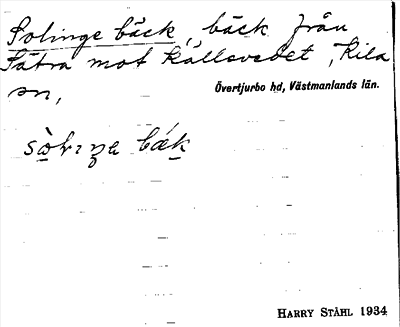 Solinge bäck, bäck från
Sätra mot Källsvedet, Kila
sn,
Övertjurbo hd, Västmanlands län.
HARRY STÅHL 1934